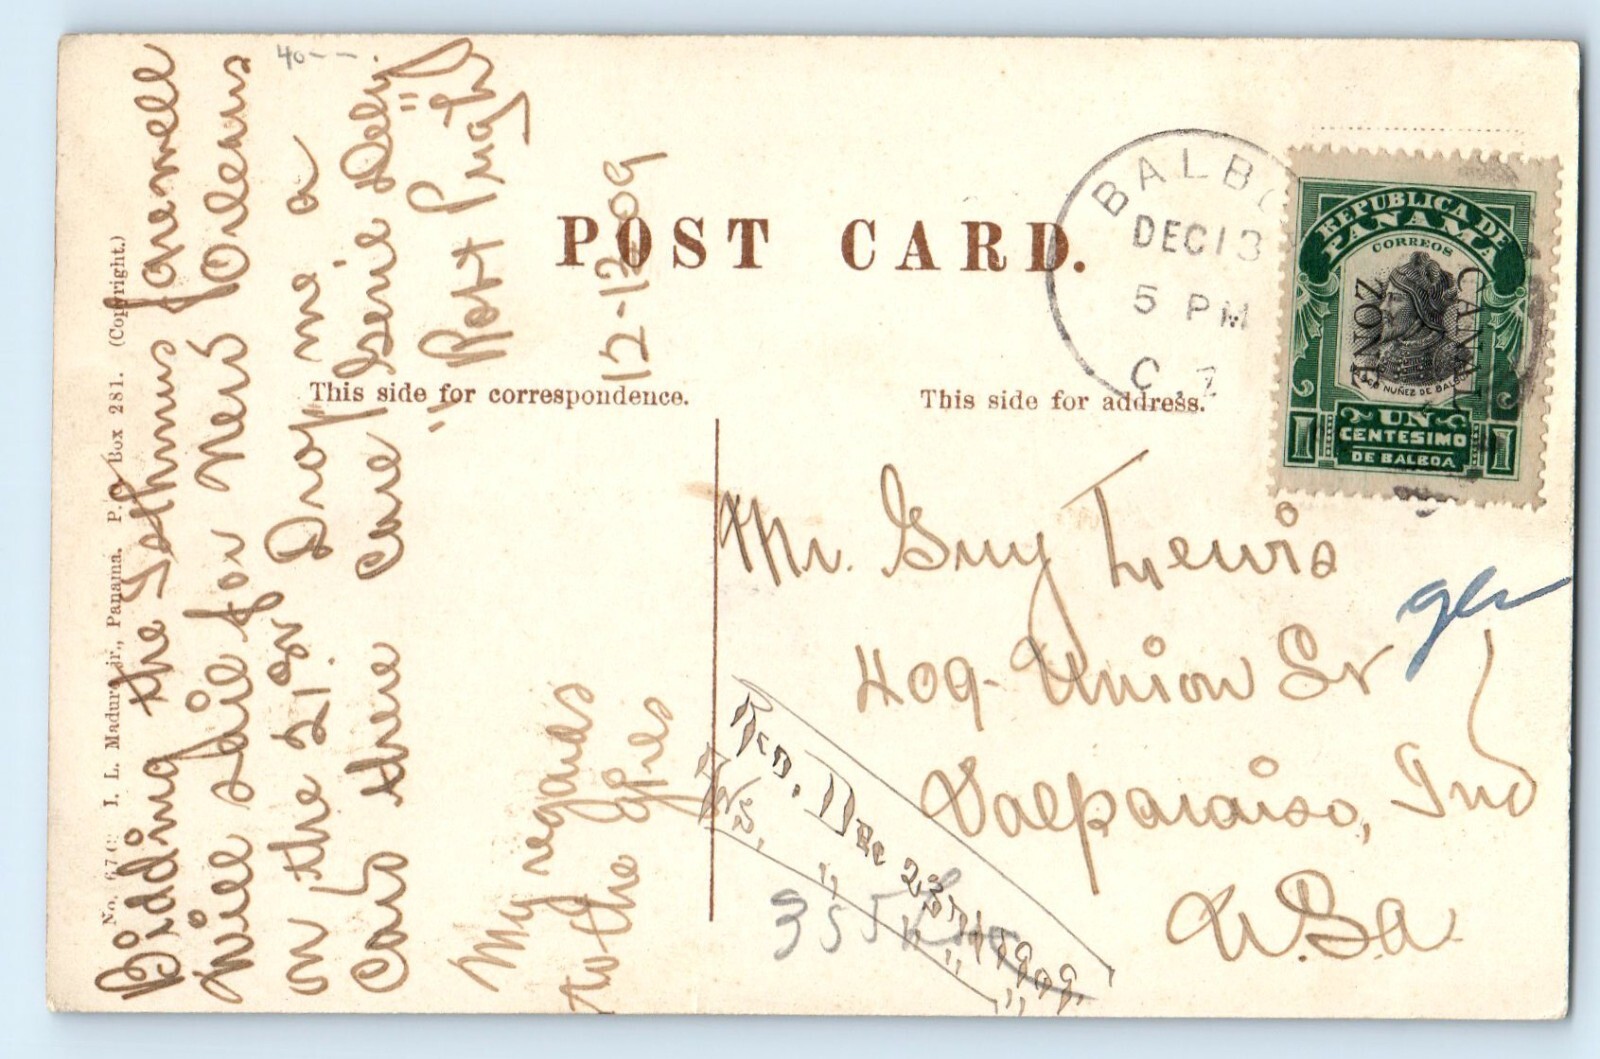 40--
Bidding the Isthmus farewell
Will sail for New Orleans
on the 21st Drop me a
Card there care Gene Deliv.
"Robt Pugh"
12-12-09
My regards
to the
No. 67 C. I. L. Maduro jr., Panama. P. O. Box 281. (Copyright.)
POST CARD.
This side for correspondence.
This side for address.
BALBO
DEC 13
5 PM
C Z
REPUBLICA DE
PANAMA
CORREOS
CANAL
ZONE
VASCO NUÑEZ DE BALBOA
1 UN 1
CENTESIMO
DE BALBOA
Mr. Guy Lewis
409- Union St
Valparaiso, Ind
U.S.A
Rcd. Dec 23, 1909.
Ans. " " "
355